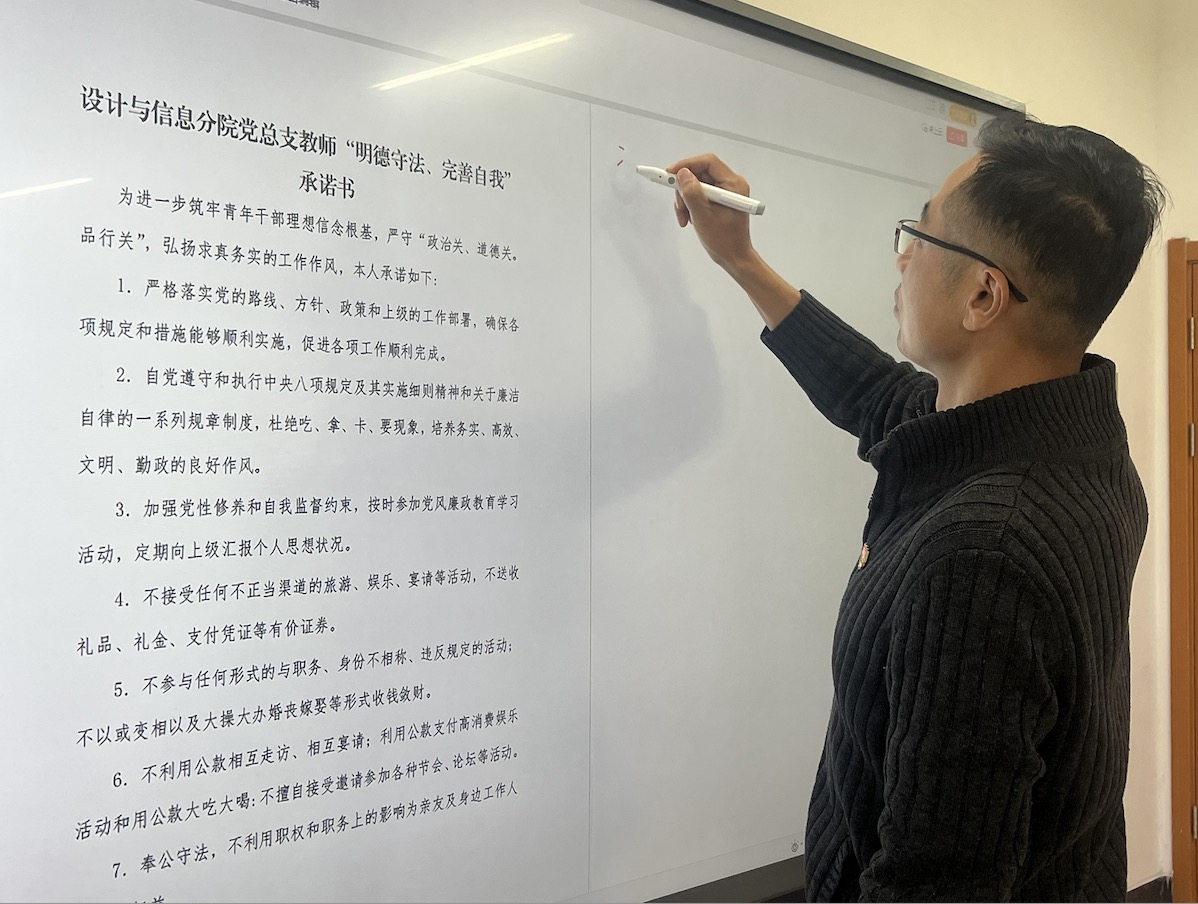 设计与信息分院党总支教师“明德守法、完善自我”
承诺书
为进一步筑牢青年干部理想信念根基，严守“政治关、道德关。
品行关”，弘扬求真务实的工作作风，本人承诺如下：
1．严格落实党的路线、方针、政策和上级的工作部署，确保各
项规定和措施能够顺利实施，促进各项工作顺利完成。
2．自党遵守和执行中央八项规定及其实施细则精神和关于廉洁
自律的一系列规章制度，杜绝吃、拿、卡、要现象，培养务实、高效、
文明、勤政的良好作风。
3．加强党性修养和自我监督约束，按时参加党风廉政教育学习
活动，定期向上级汇报个人思想状况。
4．不接受任何不正当渠道的旅游、娱乐、宴请等活动，不送收
礼品、礼金、支付凭证等有价证券。
5．不参与任何形式的与职务、身份不相称、违反规定的活动；
不以或变相以及大操大办婚丧嫁娶等形式收钱敛财。
6．不利用公款相互走访、相互宴请；利用公款支付高消费娱乐
活动和用公款大吃大喝；不擅自接受邀请参加各种节会、论坛等活动。
7．奉公守法，不利用职权和职务上的影响为亲友及身边工作人